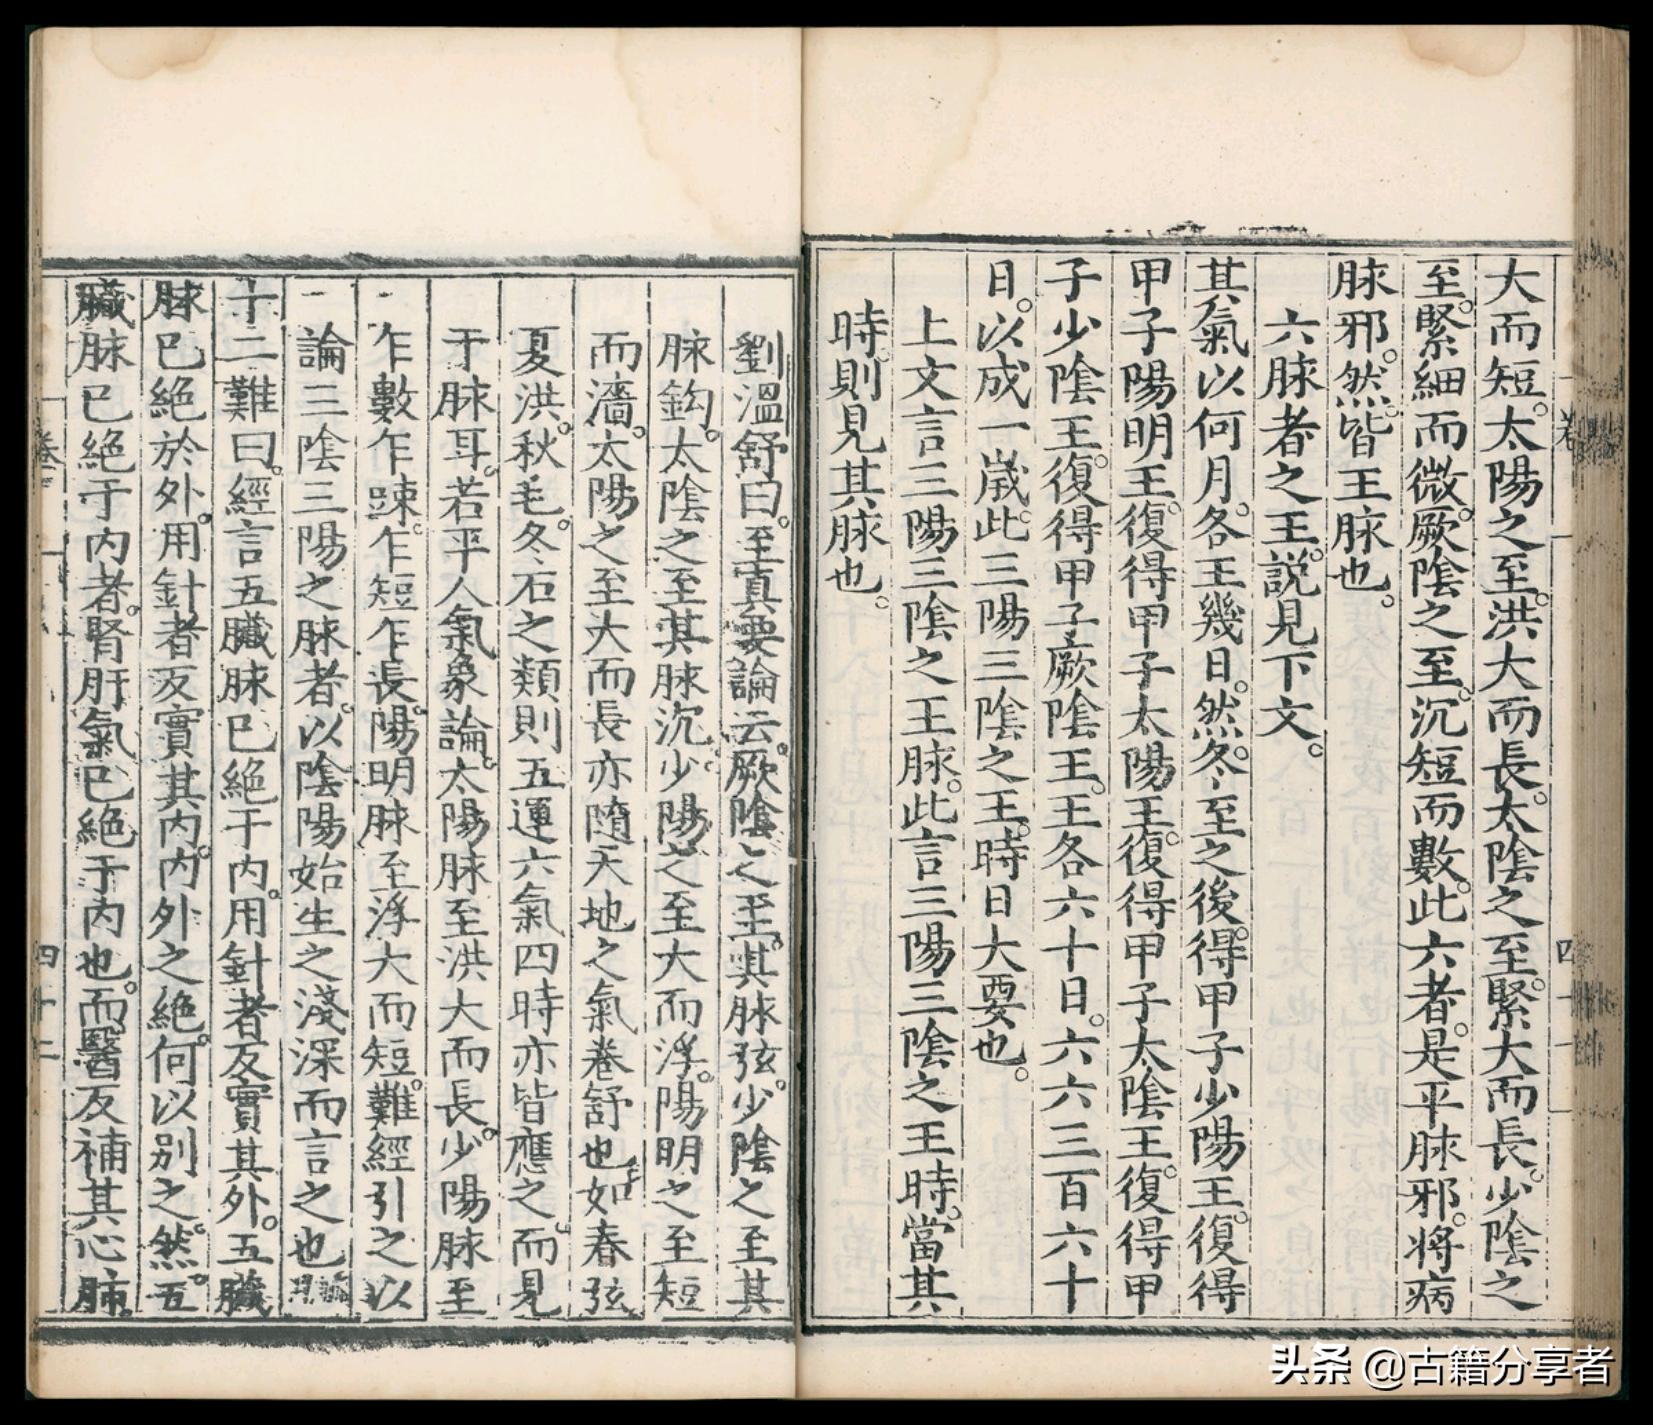 大而短。太陽之至。洪大而長。太陰之至。緊大而長。少陰之
至。緊細而微。厥陰之至。沉短而數。此六者。是平脉邪。將病
脉邪。然。皆王脉也。
六脉者之王。説見下文。
其氣以何月。各王幾日。然。冬至之後。得甲子少陽王。復得
甲子陽明王。復得甲子太陽王。復得甲子太陰王。復得甲
子少陰王。復得甲子厥陰王。王各六十日。六六三百六十
日。以成一嵗。此三陽三陰之王。時日大要也。
上文言三陽三陰之王脉。此言三陽三陰之王時。當其
時。則見其脉也。
劉溫舒曰。至真要論云。厥陰之至。其脉弦。少陰之至其
脉鈎。太陰之至其脉沉。少陽之至大而浮。陽明之至短
而濇。太陽之至大而長亦隨天地之氣卷舒也如春弦
夏洪。秋毛。冬石之類則五運六氣四時亦皆應之。而見
于脉耳。若平人氣象論。太陽脉至洪大而長。少陽脉至
乍數乍踈。乍短乍長。陽明脉至浮大而短。難經引之以
論三陰三陽之脉者。以陰陽始生之淺深而言之也
十二難曰。經言五臟脉已絶于内。用針者反實其外。五臟
脉已絶於外。用針者反實其内。内外之絶。何以别之。然。五
臟脉已絶于内者。腎肝氣已絶于内也。而醫反補其心肺。
卷二
四十二
头条 @古籍分享者